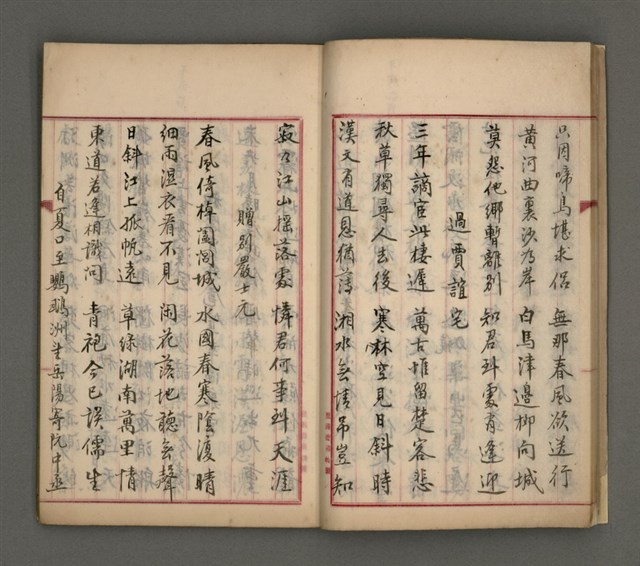 只因啼鳥堪求侶 無那春風欲送行
黃河曲裏沙為岸 白馬津邊柳向城
莫怨他鄉暫離別 知君到處有逢迎
過賈誼宅
三年謫宦此棲遲 萬古惟留楚客悲
秋草獨尋人去後 寒林空見日斜時
漢文有道恩猶薄 湘水無情弔豈知
寂々江山搖落處 憐君何事到天涯
贈別嚴士元
春風倚棹闔閭城 水國春寒陰復晴
細雨濕衣看不見 閑花落地聽無聲
日斜江上孤帆遠 草綠湖南萬里情
東道若逢相識問 青袍今已誤儒生
自夏口至鸚鵡洲望岳陽寄阮中丞